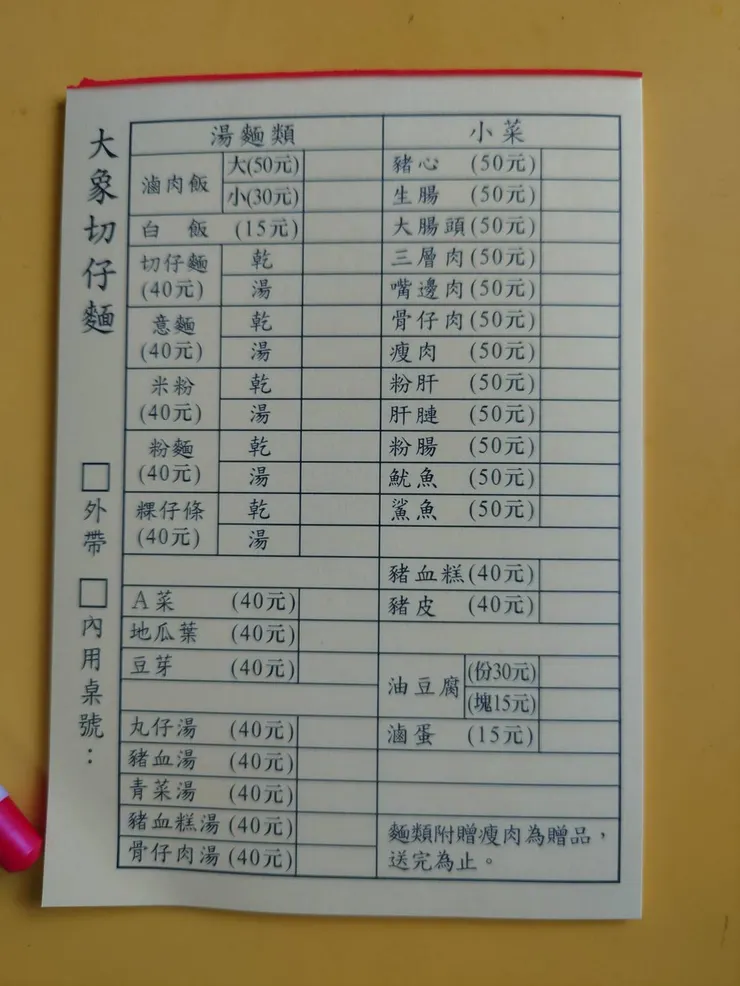 大象切仔麵
□外帶 □內用桌號：
湯麵類
滷肉飯 大(50元)
小(30元)
白飯 (15元)
切仔麵 (40元) 乾
湯
意麵 (40元) 乾
湯
米粉 (40元) 乾
湯
粉麵 (40元) 乾
湯
粿仔條 (40元) 乾
湯
A菜 (40元)
地瓜葉 (40元)
豆芽 (40元)
丸仔湯 (40元)
豬血湯 (40元)
青菜湯 (40元)
豬血糕湯 (40元)
骨仔肉湯 (40元)
小菜
豬心 (50元)
生腸 (50元)
大腸頭 (50元)
三層肉 (50元)
嘴邊肉 (50元)
骨仔肉 (50元)
瘦肉 (50元)
粉肝 (50元)
肝膧 (50元)
粉腸 (50元)
魷魚 (50元)
鯊魚 (50元)
豬血糕 (40元)
豬皮 (40元)
油豆腐 (份30元)
(塊15元)
滷蛋 (15元)
麵類附贈瘦肉為贈品，
送完為止。